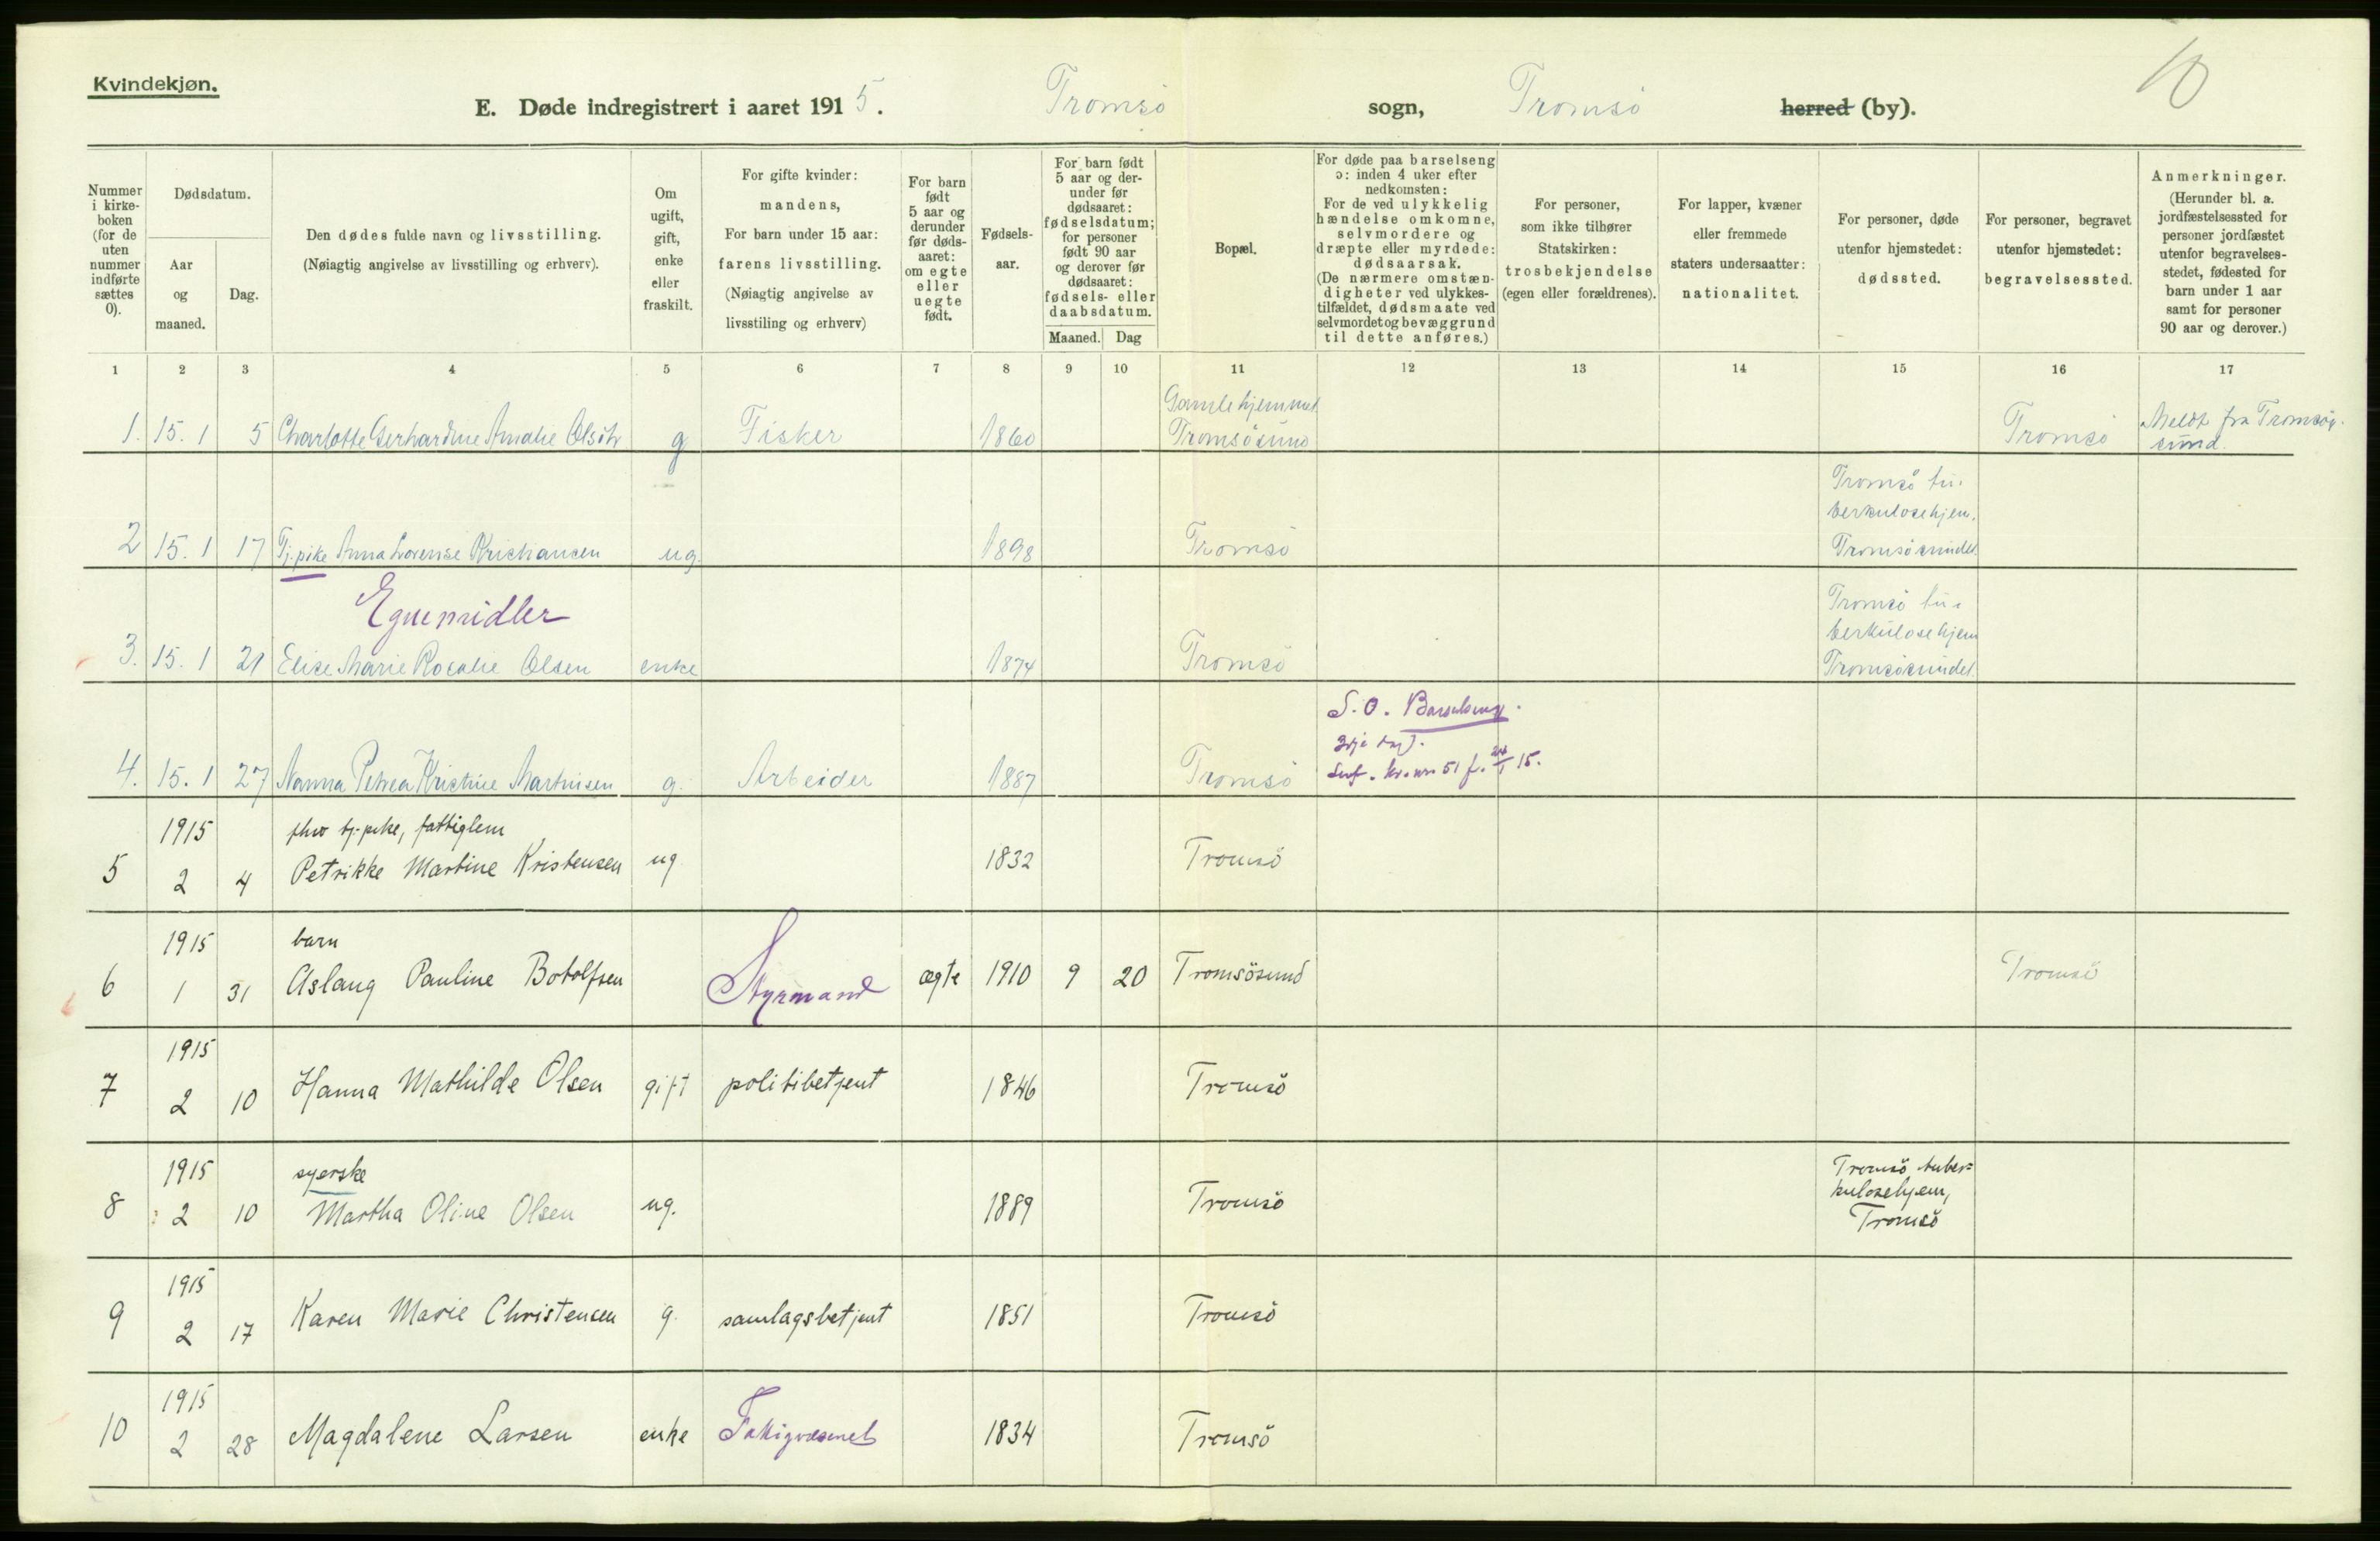 Kvindekjøn.
10
E. Døde indregistrert i aaret 1915. Tromsö sogn, Tromsö herred (by).
Nummer i kirke-boken (for de uten nummer indførte sættes 0).
Dødsdatum.
Aar og maaned.
Dag.
Den dødes fulde navn og livsstilling.
(Nøiagtig angivelse av livsstilling og erhverv).
Om ugift, gift, enke eller fraskilt.
For gifte kvinder: mandens,
For barn under 15 aar: farens livsstilling.
(Nøiagtig angivelse av livsstiling og erhverv)
For barn født 5 aar og derunder før døds-aaret: om egte eller uegte født.
Fødsels-aar.
For barn født 5 aar og der-under før dødsaaret: fødselsdatum; for personer født 90 aar og derover før dødsaaret: fødsels- eller daabsdatum.
Maaned. Dag
Bopæl.
For døde paa barselseng ɔ: inden 4 uker efter nedkomsten:
For de ved ulykkelig hændelse omkomne, selvmordere og dræpte eller myrdede: dødsaarsak.
(De nærmere omstæn-digheter ved ulykkes-tilfældet, dødsmaate ved selvmordet og bevæggrund til dette anføres.)
For personer, som ikke tilhører Statskirken: trosbekjendelse (egen eller forældrenes).
For lapper, kvæner eller fremmede staters undersaatter: nationalitet.
For personer, døde utenfor hjemstedet: dødssted.
For personer, begravet utenfor hjemstedet: begravelsessted.
Anmerkninger.
(Herunder bl. a. jordfæstelsessted for personer jordfæstet utenfor begravelses-stedet, fødested for barn under 1 aar samt for personer 90 aar og derover.)
1 2 3 4 5 6 7 8 9 10 11 12 13 14 15 16 17
Gamlehjemmet
1. 15. 1 5 Charlotte Gerhardine Amalie g Fisker 1860 Tromsösund Tromsö Meldt fra Tromsöy-
sund.
Tromsö tu-
berkulosehjem,
2 15. 1 17 Tj.pike Anna Lovense Kristiansen ug. 1898 Tromsö Tromsösundet
Egne midler
Tromsö tu-
berkulosehjem
3. 15. 1 21 Elise Marie Rosalie Olsen enke 1874 Tromsö Tromsösundet
S. O. Barselseng.
3dje dag.
4. 15. 1 27 Nanna Petrea Kristine Martinsen g. Arbeider 1887 Tromsö kr. nr 51 f. 24/1 15.
1915 fhv tj.pike, fattiglem
5 2 4 Petrikke Martine Kristensen ug 1832 Tromsö
1915 barn
6 1 31 Aslaug Pauline Botolfsen Styrmand ægte 1910 9 20 Tromsösund Tromsö
1915
7 2 10 Hanna Mathilde Olsen gift politibetjent 1846 Tromsö
1915 syerske Tromsö tuber=
kulosehjem,
8 2 10 Martha Oline Olsen ug. 1889 Tromsö Tromsö
1915
9 2 17 Karen Marie Christensen g. samlagsbetjent 1851 Tromsö
1915
10 2 28 Magdalene Larsen enke Fattigvæsenet 1834 Tromsö